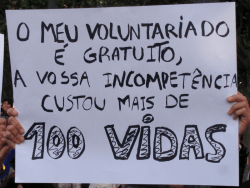 O MEU VOLUNTARIADO
É GRATUITO,
A VOSSA INCOMPETÊNCIA
CUSTOU MAIS DE
100 VIDAS